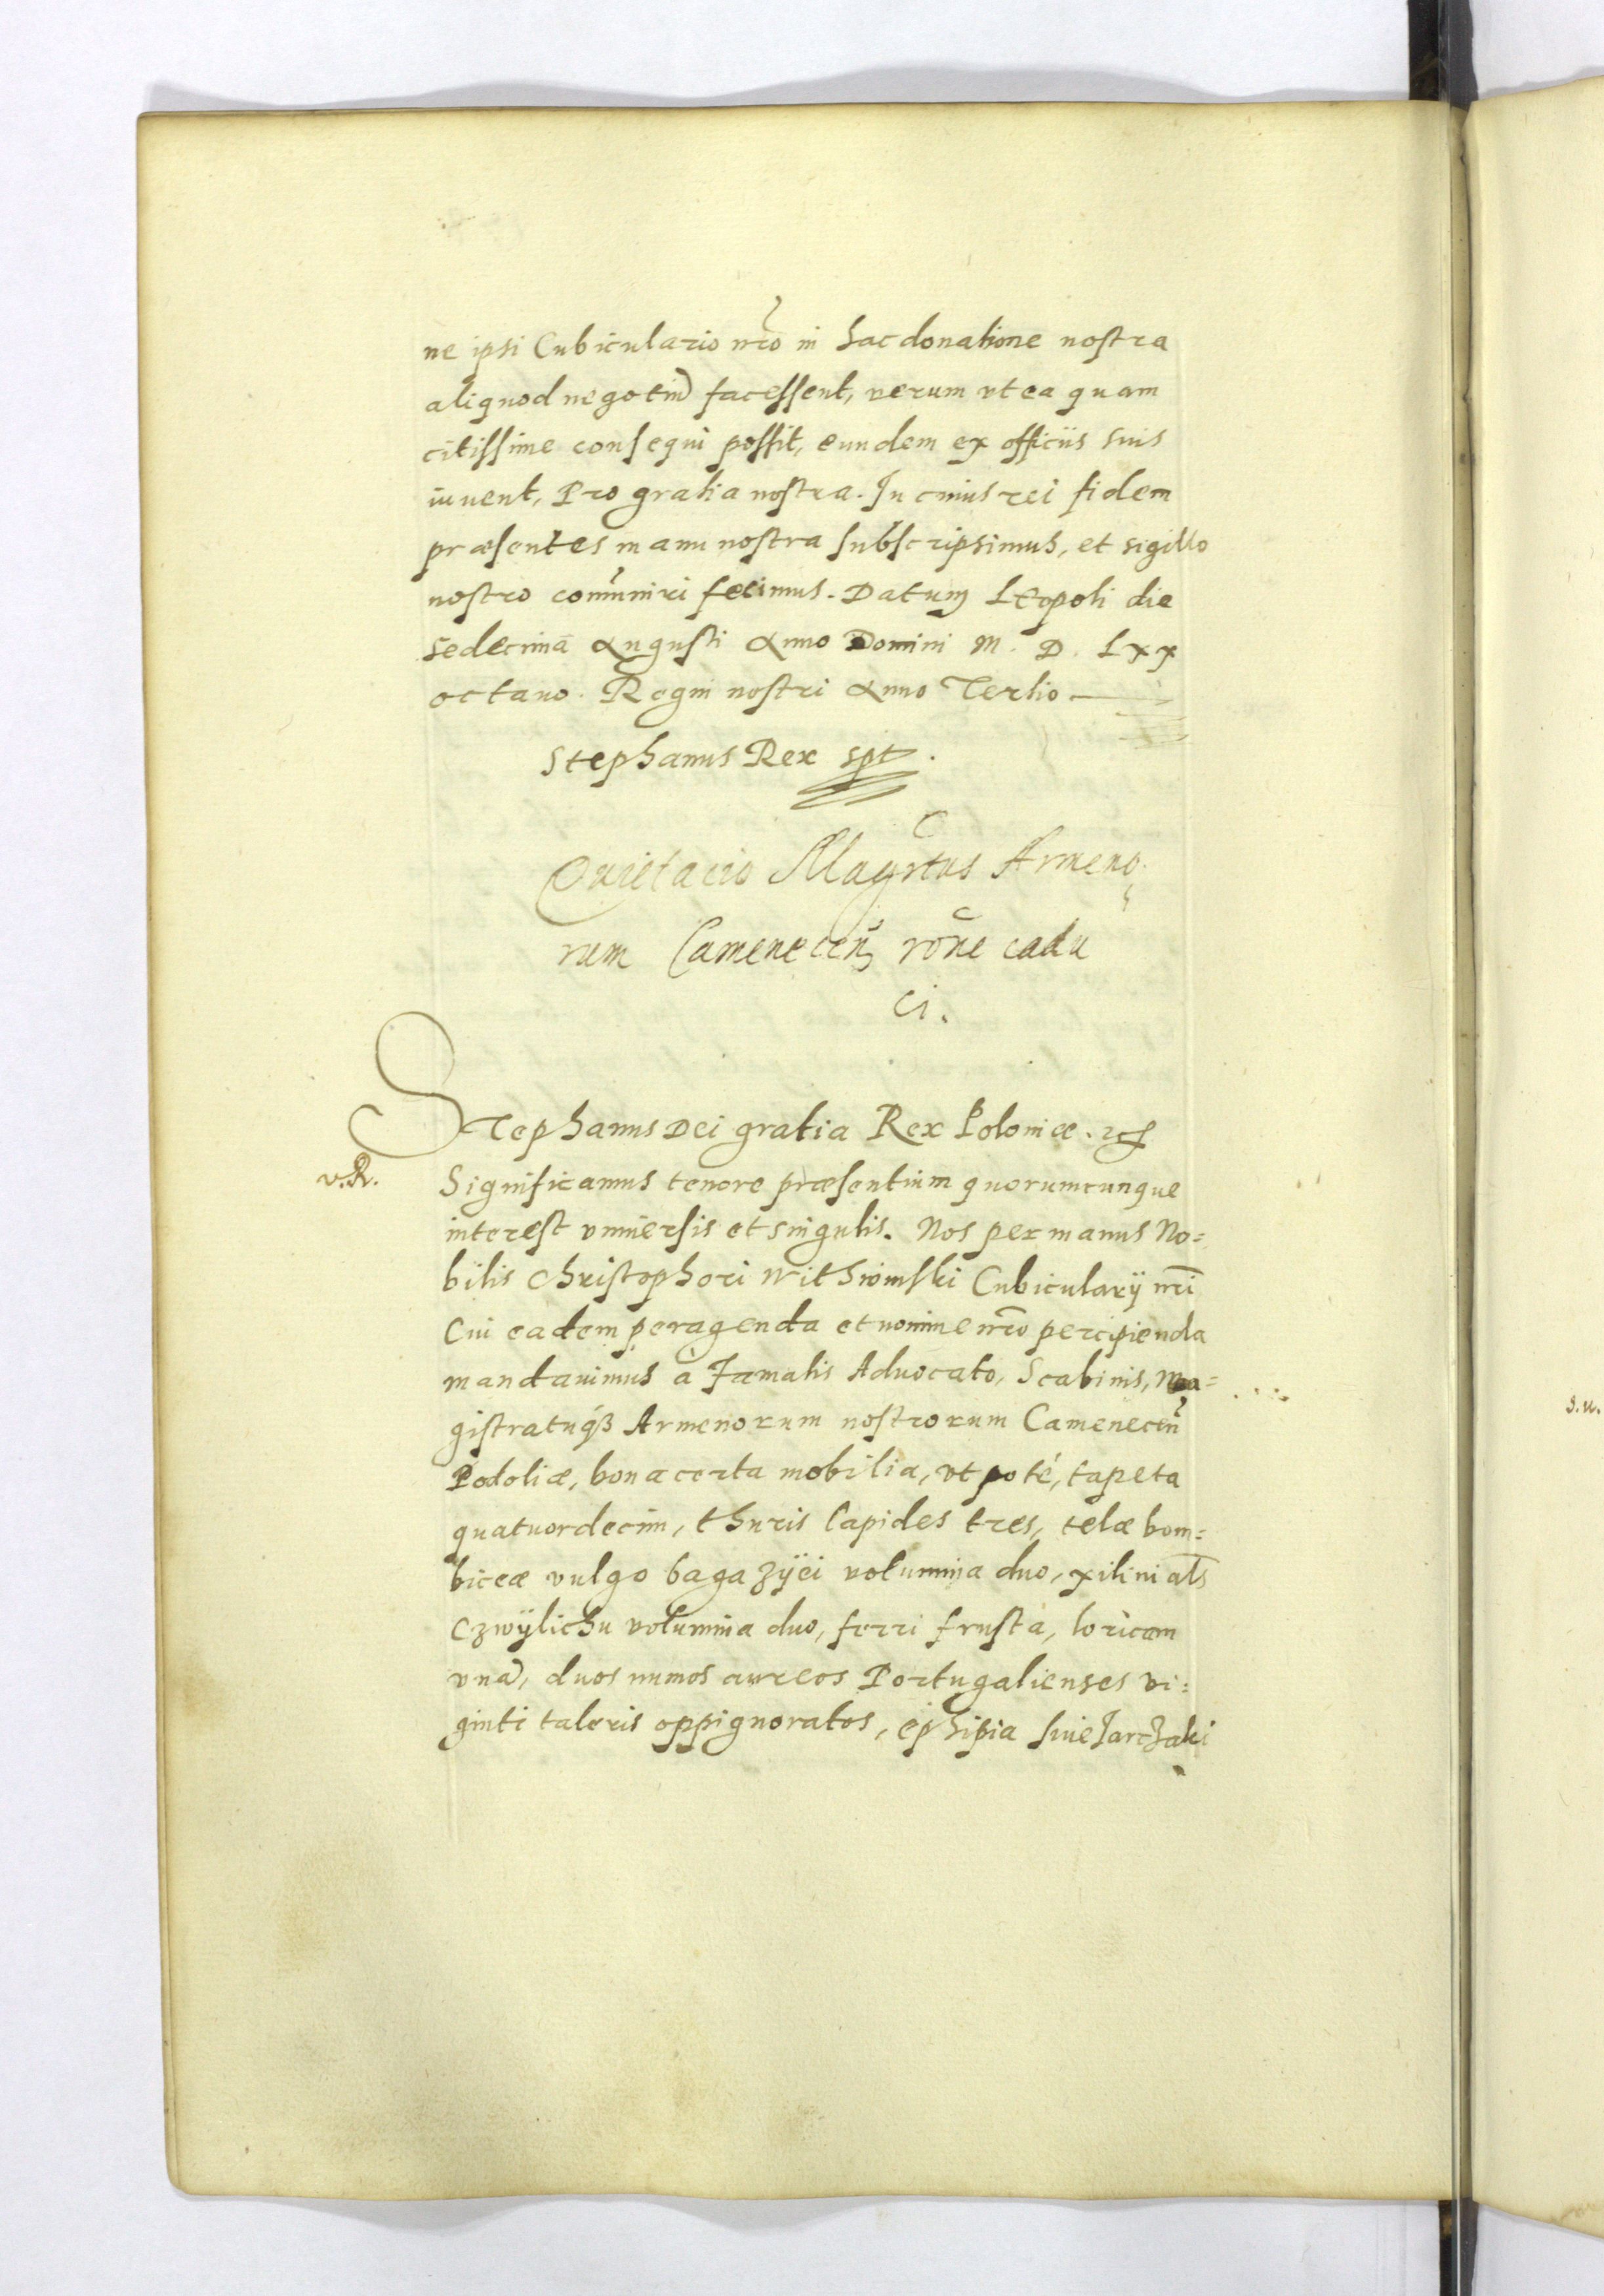 ne ipsi Cubiculario nro in hac donatione nostra
aliquod negotiũ facessent, verum vt ea quam
citissime consequi possit, eundem ex officiis suis
iuvent, Pro gratia nostra. In cuius rei fidem
præsentes manu nostra subscripsimus, et sigillo
nostro com̃uniri fecimus. Datum Leopoli die
sedecimā Augusti Anno Domini M. D. Lxx
octauo. Regni nostri Anno Tertio
Stephanus Rex spt.
Quietacio Magrtus Armeno
rum Camenecen̄ rōne cadu
ci.
Stephanus Dei gratia Rex Poloniæ. etc
v.R.
Significamus tenore præsentium quorumcunque
interest vniuersis et singulis. Nos per manus No=
bilis Christophori Withwinski Cubicularÿ nr̄i
Cui eadem peragenda et nomine nr̄o percipienda
mandauimus à Famatis Advocato, Scabinis, Ma=
gistratuq́ꝫ Armenorum nostrorum Camenecen̄
Podoliæ, bona certa mobilia, vt poté, tapeta
quatuordecim, thuris lapides tres, telæ bom=
biceæ vulgo bagazÿei volumina duo, xilini al̄s
Czwÿlichu volumina duo, ferri frusta, loricam
vnã, duos numos aureos Portugalienses vi=
ginti taleris oppignoratos, ephipia siue Jarczaki
s.u.